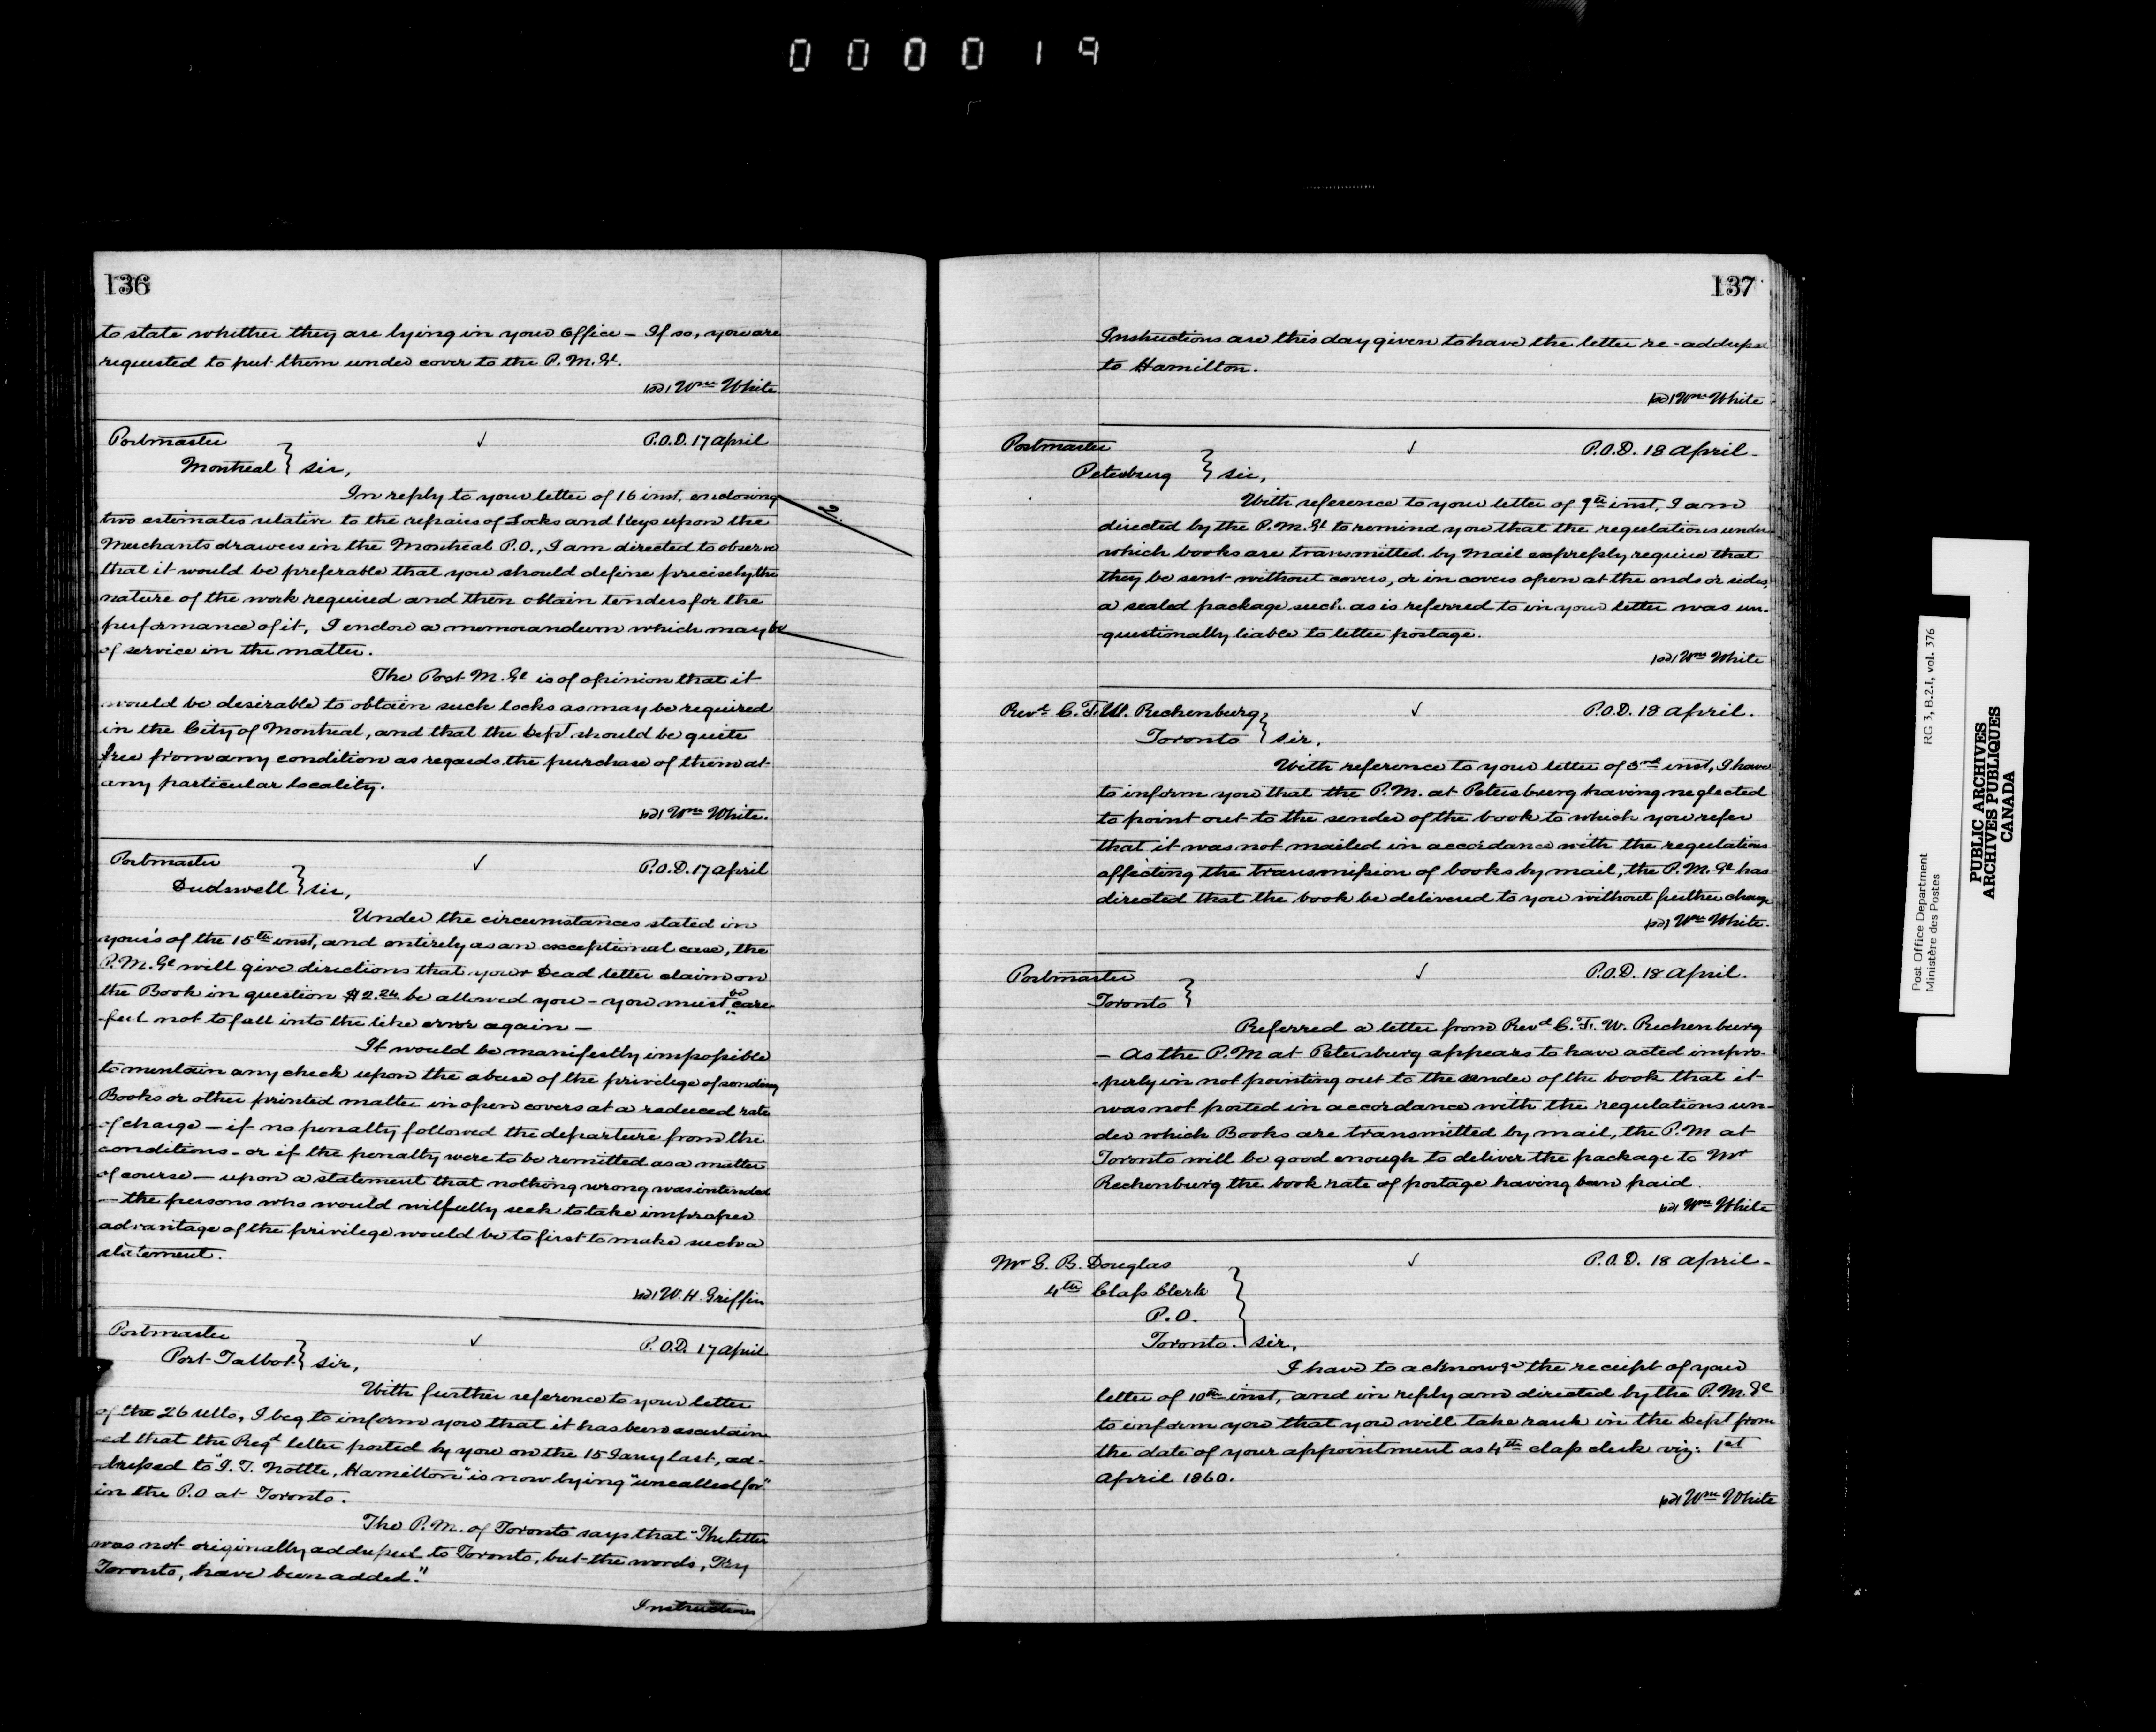 000019
136
to state whether they are lying in your Office – If so, you are
requested to put them under cover to the P. M. Gl.
Wm White
Postmaster ✓ P.O.D. 17 April
Montreal } Sir,
In reply to your letter of 16 inst, enclosing
two estimates relative to the repairs of Locks and Keys upon the
Merchants drawers in the Montreal P.O., I am directed to observe
that it would be preferable that you should define precisely the
nature of the work required and then obtain tenders for the
performance of it, I enclose a memorandum which may be
of service in the matter.
The Post M. Gl is of opinion that it
would be desirable to obtain such locks as may be required
in the City of Montreal, and that the Dept should be quite
free from any condition as regards the purchase of them at
any particular locality.
Wm White.
Postmaster ✓ P.O.D. 17 April
Dudswell } Sir,
Under the circumstances stated in
your's of the 15th inst, and entirely as an exceptional case, the
P.M. Gl will give directions that your Dead letter claim on
the Book in question $2.24 be allowed you – you must be care-
ful not to fall into the like error again –
It would be manifestly impossible
to mentain any check upon the abuse of the privilege of sending
Books or other printed matter in open covers at a reduced rate
of charge – if no penalty followed the departure from the
conditions – or if the penalty were to be remitted as a matter
of course – upon a statement that nothing wrong was intended
– the persons who would wilfully seek to take improper
advantage of the privilege would be to first to make such a
statement.
W. H. Griffin
Postmaster ✓ P.O.D. 17 April
Port Talbot } Sir,
With further reference to your letter
of the 26 ullo, I beg to inform you that it has been ascertain-
ed that the Regd letter posted by you on the 15 Jany last, ad-
dressed to "I. T. Nottle, Hamilton" is now lying "uncalled for"
in the P.O at Toronto.
The P.M. of Toronto says that "The letter
was not originally addressed to Toronto, but the words,
Toronto, have been added."
Instructions
137
Instructions are this day given to have the letter re-addressed
to Hamilton.
Wm White
Postmaster ✓ P.O.D. 18 April –
Petersburg } Sir,
With reference to your letter of 9th inst, I am
directed by the P.M. Gl to remind you that the regulations under
which books are transmitted by Mail expressly require that
they be sent without covers, or in covers open at the ends or sides,
a sealed package such as is referred to in your letter was un-
questionally liable to letter postage.
Wm White
Revd C. F. W. Rechenburg ✓ P.O.D. 18 April.
Toronto } Sir,
With reference to your letter of 3rd inst, I have
to inform you that the P.M. at Petersburg having neglected
to point out to the sender of the book to which you refer
that it was not mailed in accordance with the regulations
affecting the transmission of books by mail, the P.M. Gl has
directed that the book be delivered to you without further charge
Wm White.
Postmaster ✓ P.O.D. 18 April.
Toronto }
Referred a letter from Revd C. F. W. Rechenburg
– As the P.M at Petersburg appears to have acted impro-
perly in not pointing out to the sender of the book that it
was not posted in accordance with the regulations un-
der which Books are transmitted by mail, the P.M at
Toronto will be good enough to deliver the package to Mr
Rechenburg the book rate of postage having been paid.
Wm White
Mr G. B. Douglas ✓ P.O.D. 18 April –
4th Class Clerk
P.O.
Toronto. } Sir,
I have to acknowge the receipt of your
letter of 10th inst, and in reply am directed by the P.M. Gl
to inform you that you will take rank in the Dept from
the date of your appointment as 4th class clerk viz: 1st
April 1860.
Wm White
Post Office Department
Ministère des Postes
RG 3, B.2.I, vol. 376
PUBLIC ARCHIVES
ARCHIVES PUBLIQUES
CANADA